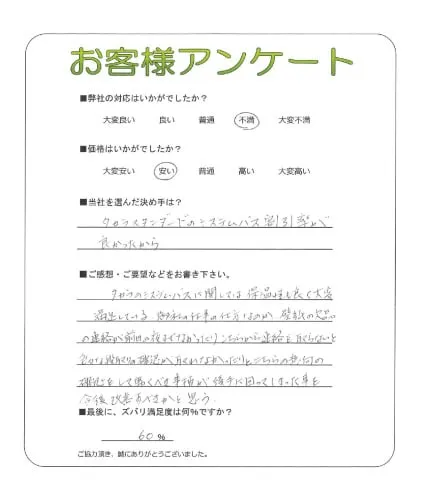 お客様アンケート
■弊社の対応はいかがでしたか？
大変良い 良い 普通 不満 大変不満
■価格はいかがでしたか？
大変安い 安い 普通 高い 大変高い
■当社を選んだ決め手は？
タカラスタンダードのシステムバス割引率が
良かったから
■ご感想・ご要望などをお書き下さい。
タカラのシステムバスに関しては保温性も良く大変
満足している 御社の仕事の仕方なのか 壁紙の欠品
の連絡が前日の夜までなかったりこちらから連絡を取らないと
段取りの確認が取れなかったりとこちらの
をして働くべき事柄が後手に回ってしまった事を
今後改善すべきかと思う
■最後に、ズバリ満足度は何％ですか？
60 %
ご協力頂き、誠にありがとうございました。